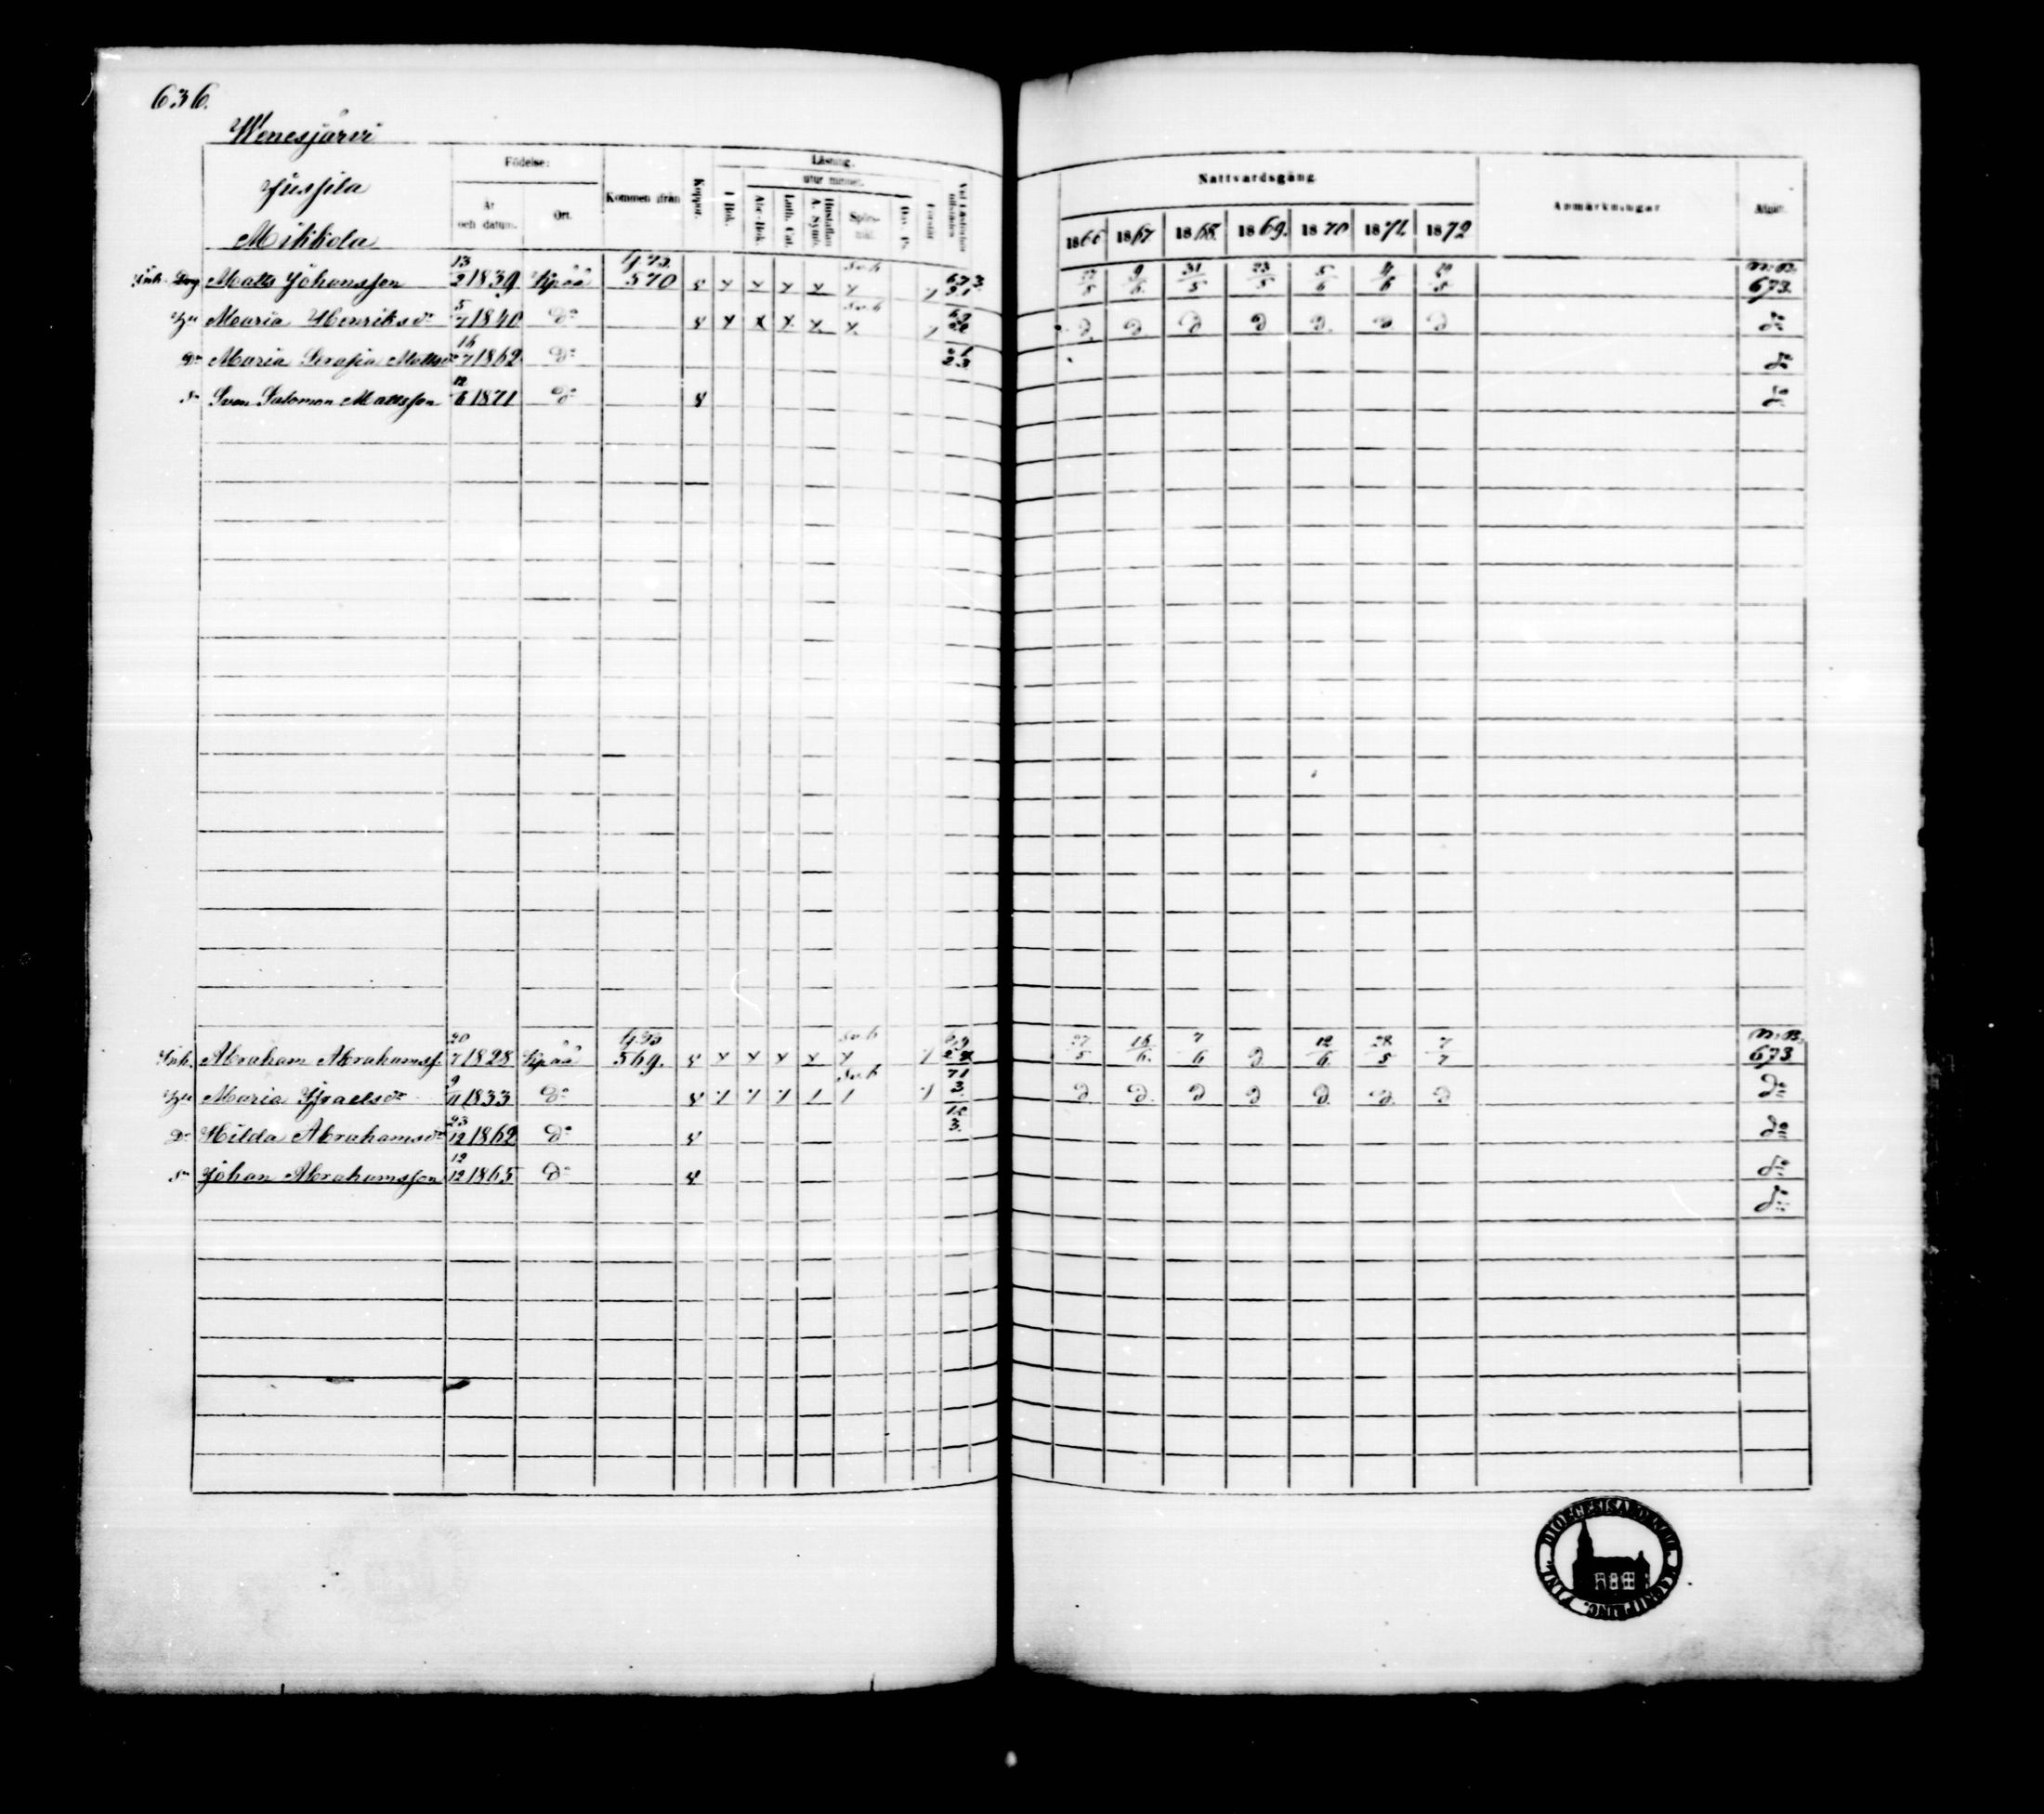 636.
Wenesjärvi
Jussila
Mikkola
Födelse:
År och datum.
Ort.
Kommen ifrån
Koppor.
Läsning.
utur minnet.
I Bok.
Abc-Bok.
Luth. Cat.
Hustaflan A. Symb.
Spörsmål
Dav. P.
Förstår
Nattvardsgång
1866 1867 1868 1869 1870 1871 1872
Anmärkningar
Afgått.
Inh. Matts Johansson 13/2 1839 570 v x x x x x 27/5 9/6 31/5 23/5 5/6 4/6 N:B. 673.
Hu Maria Henriksdr 5/7 1840 Do v x x x x x D D D D D D D do
Dr Maria Serafia Mattsdr 16/7 1862 Do 21 23 do
Sn Sven Salomon Mattsson 12/6 1871 Do v do
Inh. Abraham Abrahamss. 20/7 1828 569. v x x x x x 27/5 16/6 7/6 D 12/6 28/5 7/7 N:B. 673
Hu Maria Israelsdr 9/11 1833 Do v 71 3 D D D D D D D Do
Dr Hilda Abrahamsdr 23/12 1862 Do v 12 3. do
Sn Johan Abrahamsson 12/12 1865 Do v do
do